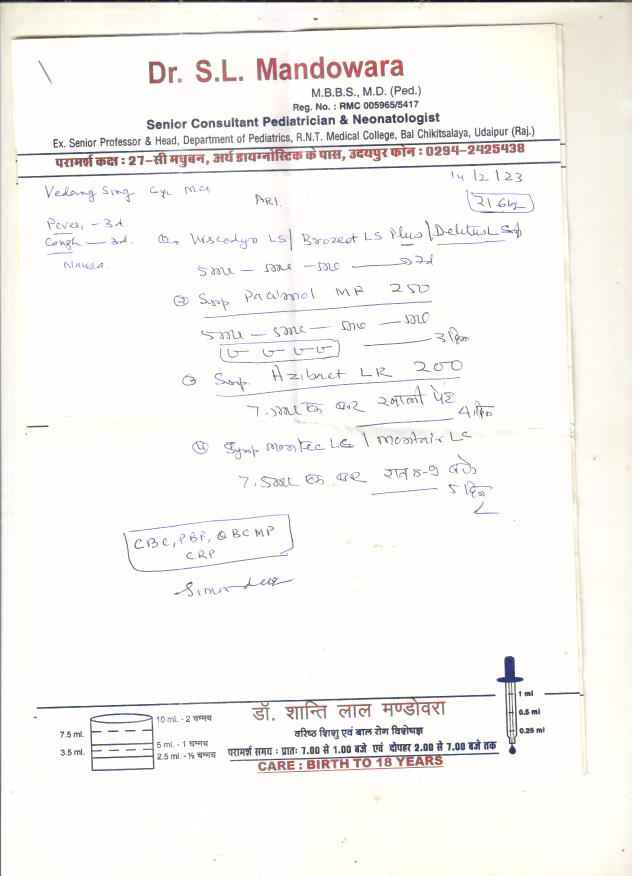 Dr. S.L. Mandowara
M.B.B.S., M.D. (Ped.)
Reg. No. : RMC 005965/5417
Senior Consultant Pediatrician & Neonatologist
Ex. Senior Professor & Head, Department of Pediatrics, R.N.T. Medical College, Bal Chikitsalaya, Udaipur (Raj.)
परामर्श कक्ष : 27-सी मधुबन, अर्थ डायग्नोस्टिक के पास, उदयपुर फोन : 0294-2425438
14/2/23
Vedang Sing
ARI.
Fever, - 3d.
Cough - 3d.
LS / Brozeet LS Plus / Deletus LS
② Syp Pacimol MR 250
3 दिन
③ Syp. LR 200
7.5ml एक बार खाली पेट
4 दिन
④ Syrup Montec LC / Montair LC
7.5ml एक बार रात 8-9 बजे
5 दिन
CBC, PBF, QBC MP
CRP
डॉ. शान्ति लाल मण्डोवरा
वरिष्ठ शिशु एवं बाल रोग विशेषज्ञ
परामर्श समय : प्रातः 7.00 से 1.00 बजे एवं दोपहर 2.00 से 7.00 बजे तक
CARE : BIRTH TO 18 YEARS
10 ml. - 2 चम्मच
7.5 ml.
5 ml. - 1 चम्मच
3.5 ml.
2.5 ml. - ½ चम्मच
1 ml
0.5 ml
0.25 ml